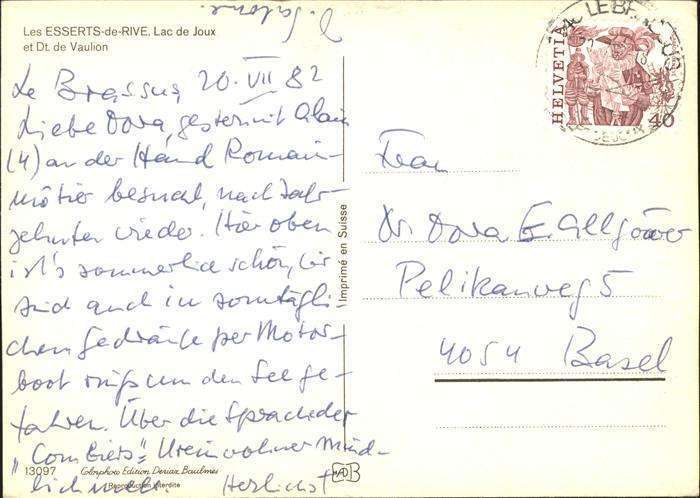 Les ESSERTS-de-RIVE, Lac de Joux
et Dt. de Vaulion
Le Brassus, 20. VII 82
Liebe Dora, gestern mit Alain
(4) an der Hand Romain-
môtier besucht, nach Jahr-
zehnten wieder. Hier oben
ist's sommerlich schön, wir
sind auch im sonntägli-
chen Gedränge per Motor-
boot rings um den See ge-
fahren. Über die Sprache der
"Combiers"= Ureinwohner münd-
lich mehr. Herlichst
13097 Colorphoto Edition Deriaz Baulmes
Reproduction interdite
Imprimé en Suisse
HELVETIA
40
LE BRASSUS
Frau
Dr. Dora E. Allgöwer
Pelikanweg 5
4054 Basel